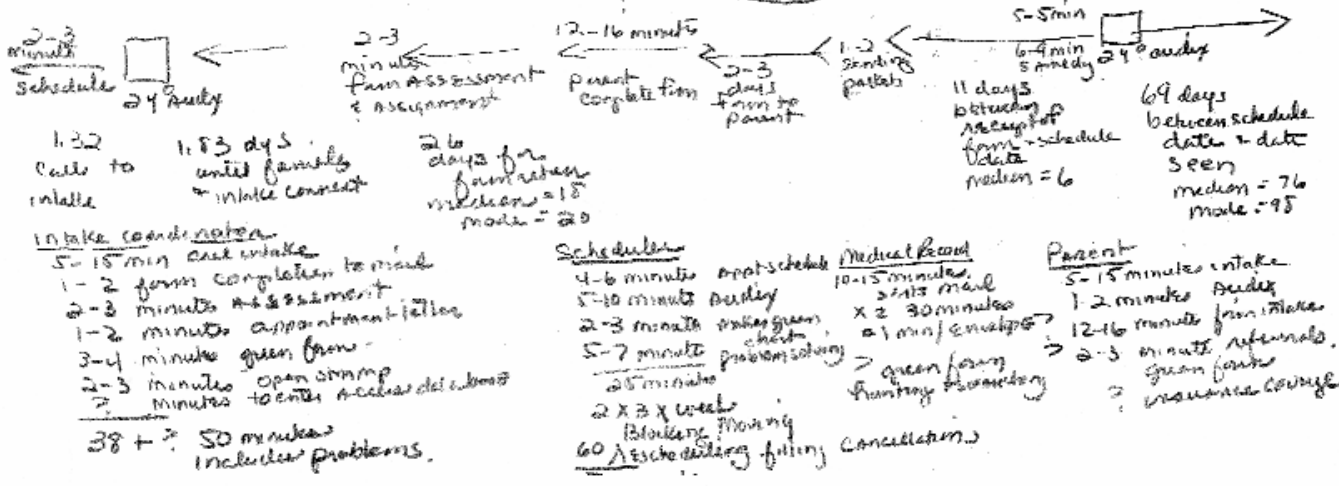 2-3
minute
schedule
24° Audix
2-3
minute
form Assessment
& Assignment
12-16 minutes
parent
complete form
2-3
days
form to
parent
1-2
sending
packets
5-5 min
6-9 min
24° audix
11 days
between
receipt of
form + schedule
date
median = 6
69 days
between schedule
date & date
seen
median = 76
mode = 98
1.32
calls to
intake
1.83 dys.
until family
+ intake connect
26
days for
form return
median = 18
mode = 20
Intake coordinator
5-15 min call intake
1-2 form completion to mail
2-3 minute Assessment
1-2 minute appointment letter
3-4 minute green form
2-3 minutes open
? minutes to enter Access database
38 + ? 50 minutes
includes problems.
Scheduler
4-6 minute Appt schedule
5-10 minute Audix
2-3 minute makes green
chart
5-7 minute problem solving
25 minutes
2 x 3 x week
Blocking Moving
60 Rescheduling filling cancellations
Medical Record
10-15 minutes
sorts mail
x 2 30 minutes
1 min/Envelope
> green form
hunting
Parent
5-15 minutes intake
1-2 minutes Audix
12-16 minute form intake
2-3 minute referrals.
green form
? insurance coverage